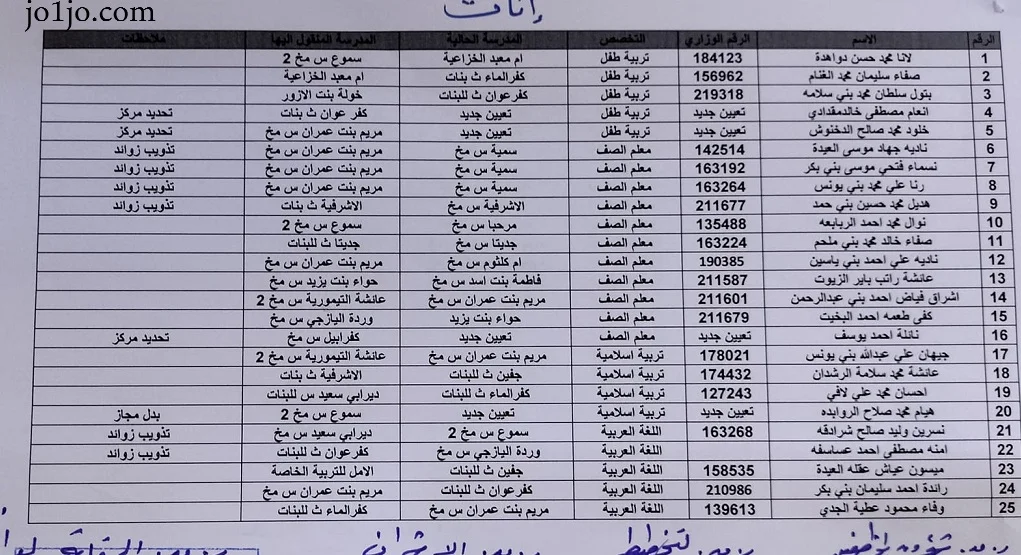 jo1jo.com
إناث
الرقم الاسم الرقم الوزاري التخصص المدرسة الحالية المدرسة المنقول اليها ملاحظات
1 لانا محمد حسن دواهدة 184123 تربية طفل ام معبد الخزاعية سموع س مخ 2
2 صفاء سليمان محمد الغنام 156962 تربية طفل كفرالماء ث بنات ام معبد الخزاعية
3 بتول سلطان محمد بني سلامه 219318 تربية طفل كفرعوان ث للبنات خولة بنت الازور
4 انعام مصطفى خالدمقدادي تعيين جديد تربية طفل تعيين جديد كفر عوان ث بنات تحديد مركز
5 خلود محمد صالح الدخنوش تعيين جديد تربية طفل تعيين جديد مريم بنت عمران س مخ تحديد مركز
6 ناديه جهاد موسى العيدة 142514 معلم الصف سمية س مخ مريم بنت عمران س مخ تذويب زوائد
7 نسماء فتحي موسى بني بكر 163192 معلم الصف سمية س مخ مريم بنت عمران س مخ تذويب زوائد
8 رنا علي محمد بني يونس 163264 معلم الصف سمية س مخ مريم بنت عمران س مخ تذويب زوائد
9 هديل محمد حسين بني حمد 211677 معلم الصف الاشرفية س مخ الاشرفية ث بنات تذويب زوائد
10 نوال محمد احمد الربابعه 135488 معلم الصف مرحبا س مخ سموع س مخ 2
11 صفاء خالد محمد بني ملحم 163224 معلم الصف جديتا س مخ جديتا ث للبنات
12 ناديه علي احمد بني ياسين 190385 معلم الصف ام كلثوم س مخ مريم بنت عمران س مخ
13 عائشة راتب باير الزيوت 211587 معلم الصف فاطمة بنت اسد س مخ حواء بنت يزيد س مخ
14 اشراق فياض احمد بني عبدالرحمن 211601 معلم الصف مريم بنت عمران س مخ عائشة التيمورية س مخ 2
15 كفى طعمه احمد البخيت 211679 معلم الصف حواء بنت يزيد وردة اليازجي س مخ
16 نائلة احمد يوسف تعيين جديد معلم الصف تعيين جديد كفرابيل س مخ تحديد مركز
17 جيهان علي عبدالله بني يونس 178021 تربية اسلامية مريم بنت عمران س مخ عائشة التيمورية س مخ 2
18 عائشة محمد سلامة الرشدان 174432 تربية اسلامية جفين ث للبنات الاشرفية ث بنات
19 احسان محمد علي لافي 127243 تربية اسلامية كفرالماء ث للبنات ديرابي سعيد س للبنات
20 هيام محمد صلاح الروابده تعيين جديد تربية اسلامية تعيين جديد سموع س مخ 2 بدل مجاز
21 نسرين وليد صالح شرادقه 163268 اللغة العربية سموع س مخ 2 ديرابي سعيد س مخ تذويب زوائد
22 امنه مصطفى احمد عساسفه اللغة العربية وردة اليازجي س مخ كفرعوان ث للبنات تذويب زوائد
23 ميسون عياش عقله العيدة 158535 اللغة العربية جفين ث للبنات الامل للتربية الخاصة
24 رائدة احمد سليمان بني بكر 210986 اللغة العربية كفرعوان ث للبنات مريم بنت عمران س مخ
25 وفاء محمود عطية الجدي 139613 اللغة العربية مريم بنت عمران س مخ كفرالماء ث للبنات